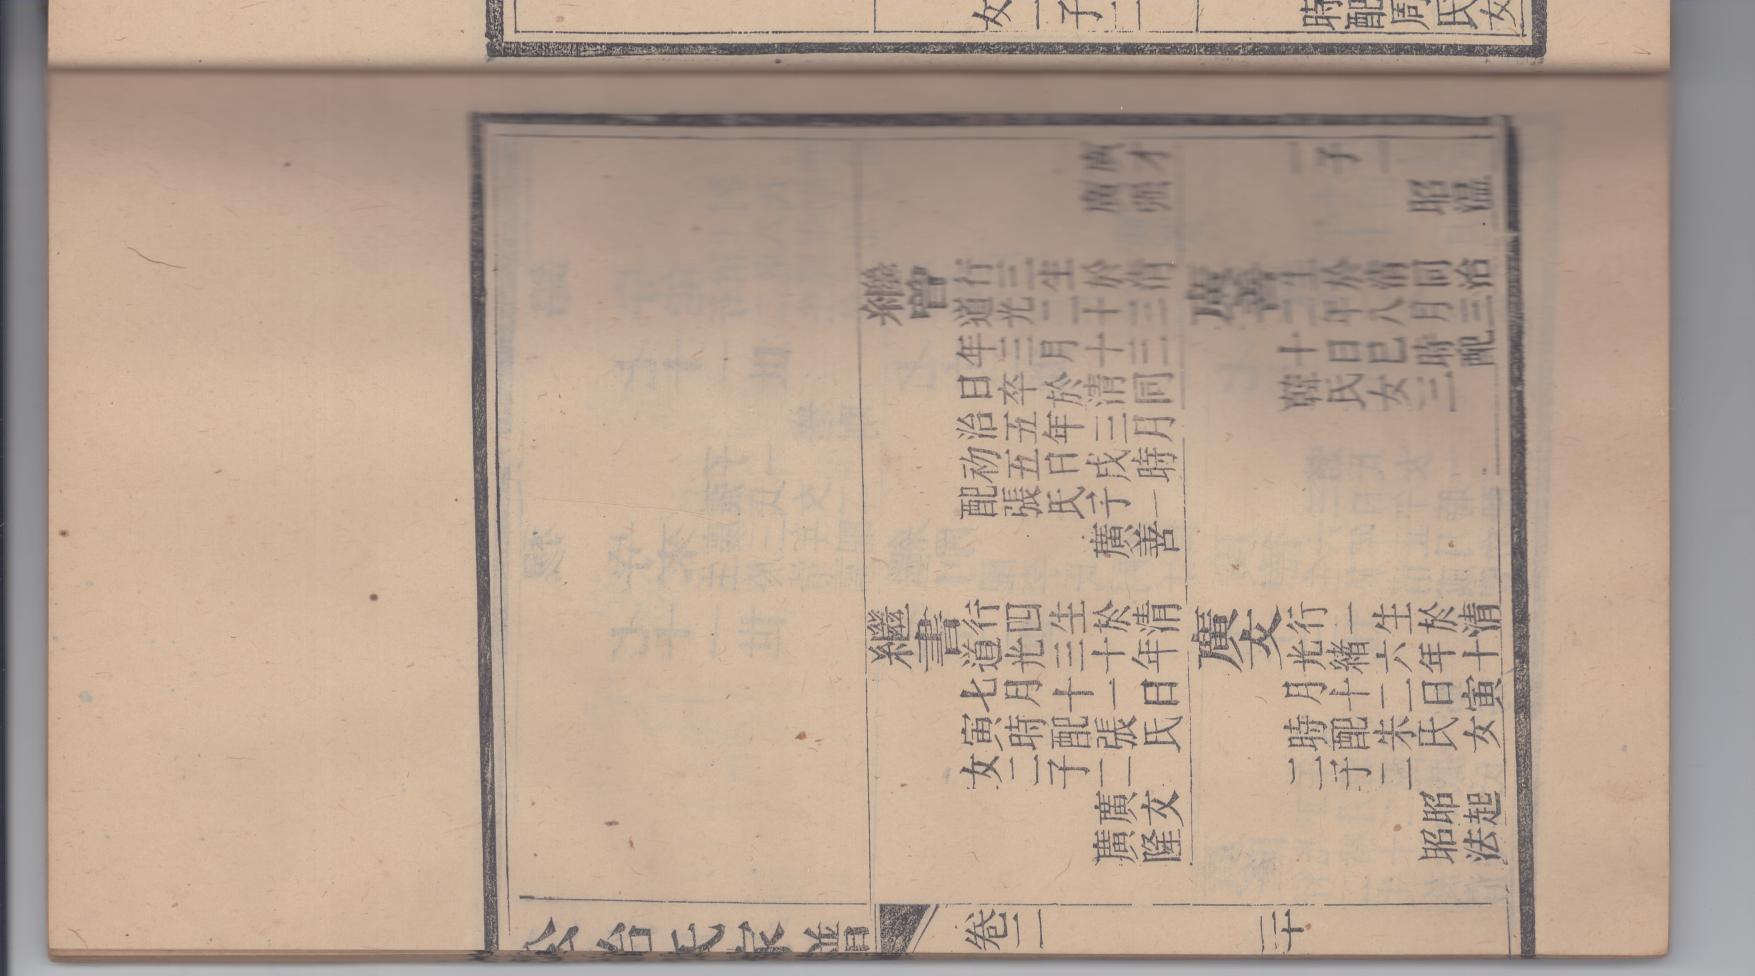 女二子二
時配周氏女
廣才
廣強
繼曾
行三生於清
道光二十三
年三月十三
日卒於清同
治五年三月
初五日戌時
配張氏子一
廣善
繼書
行四生於清
道光三十年
七月十一日
寅時配張氏
女二子二
廣文
廣隆
一子二
昭溫
廣善
生於清同治
二年八月三
十日巳時配
韓氏女三
廣文
行一生於清
光緒六年十
月十二日寅
時配朱氏女
二子二
昭起
昭法
公冶氏宗譜 卷二 二十